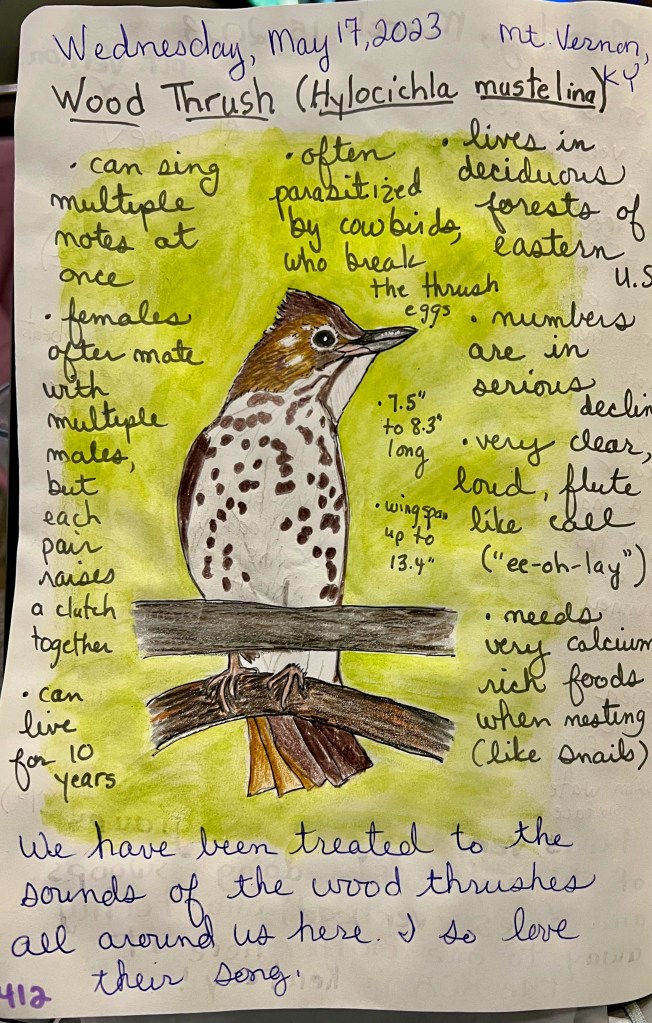 Wednesday, May 17, 2023 Mt. Vernon,
KY
Wood Thrush (Hylocichla mustelina)
• can sing
multiple
notes at
once
• females
often mate
with
multiple
males,
but
each
pair
raises
a clutch
together
• can
live
for 10
years
• often
parasitized
by cowbirds,
who break
the thrush
eggs
• 7.5"
to 8.3"
long
• wingspan
up to
13.4"
• lives in
deciduous
forests of
eastern
U.S
• numbers
are in
serious
declin
• very clear,
loud, flute
like call
("ee-oh-lay")
• needs
very calcium
rich foods
when nesting
(like snails)
We have been treated to the
sounds of the wood thrushes
all around us here. I so love
their song.
412